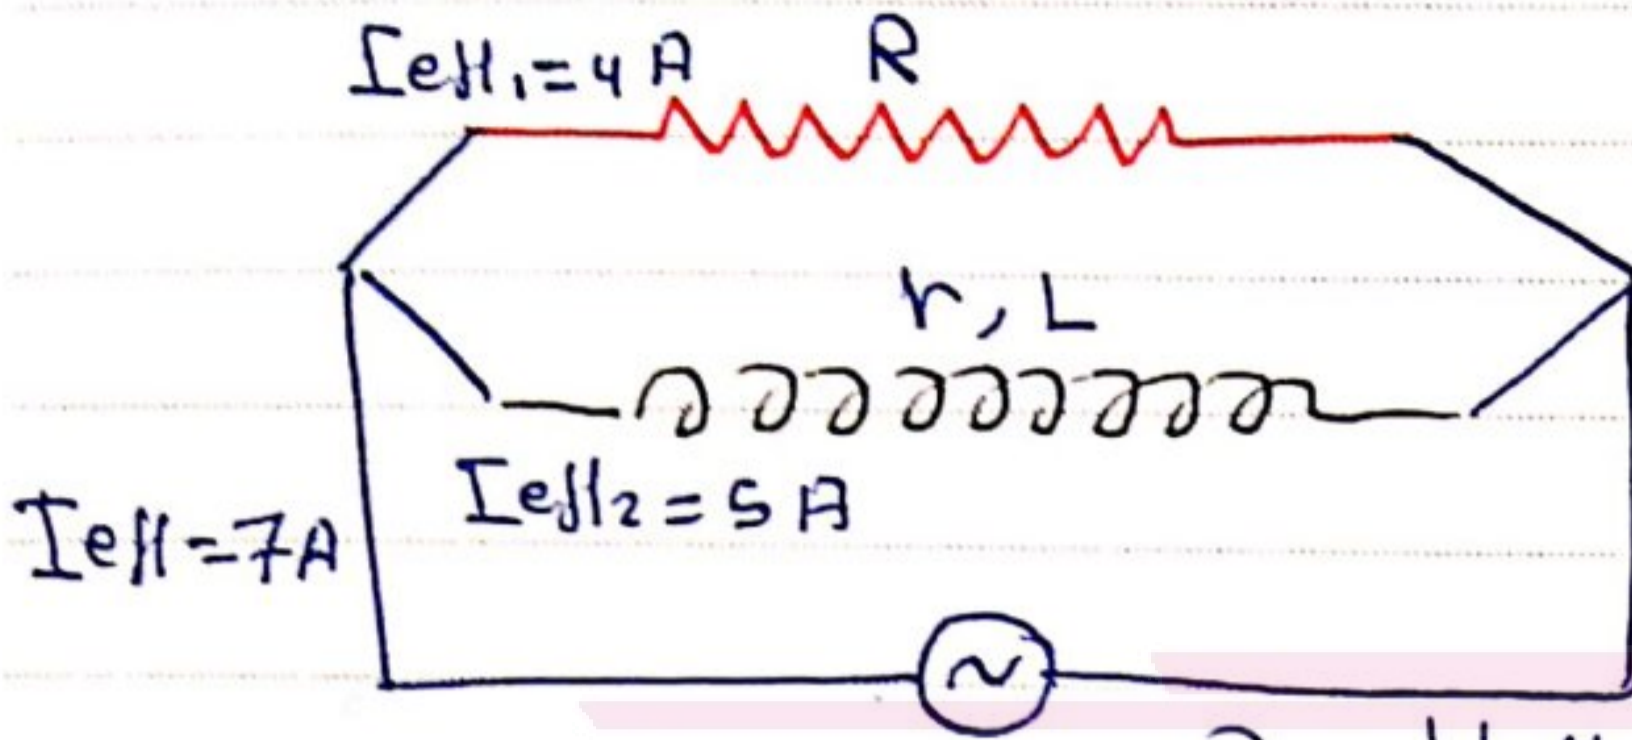 Ieff₁=4 A R
r, L
Ieff₂ = 5 A
Ieff=7A
~